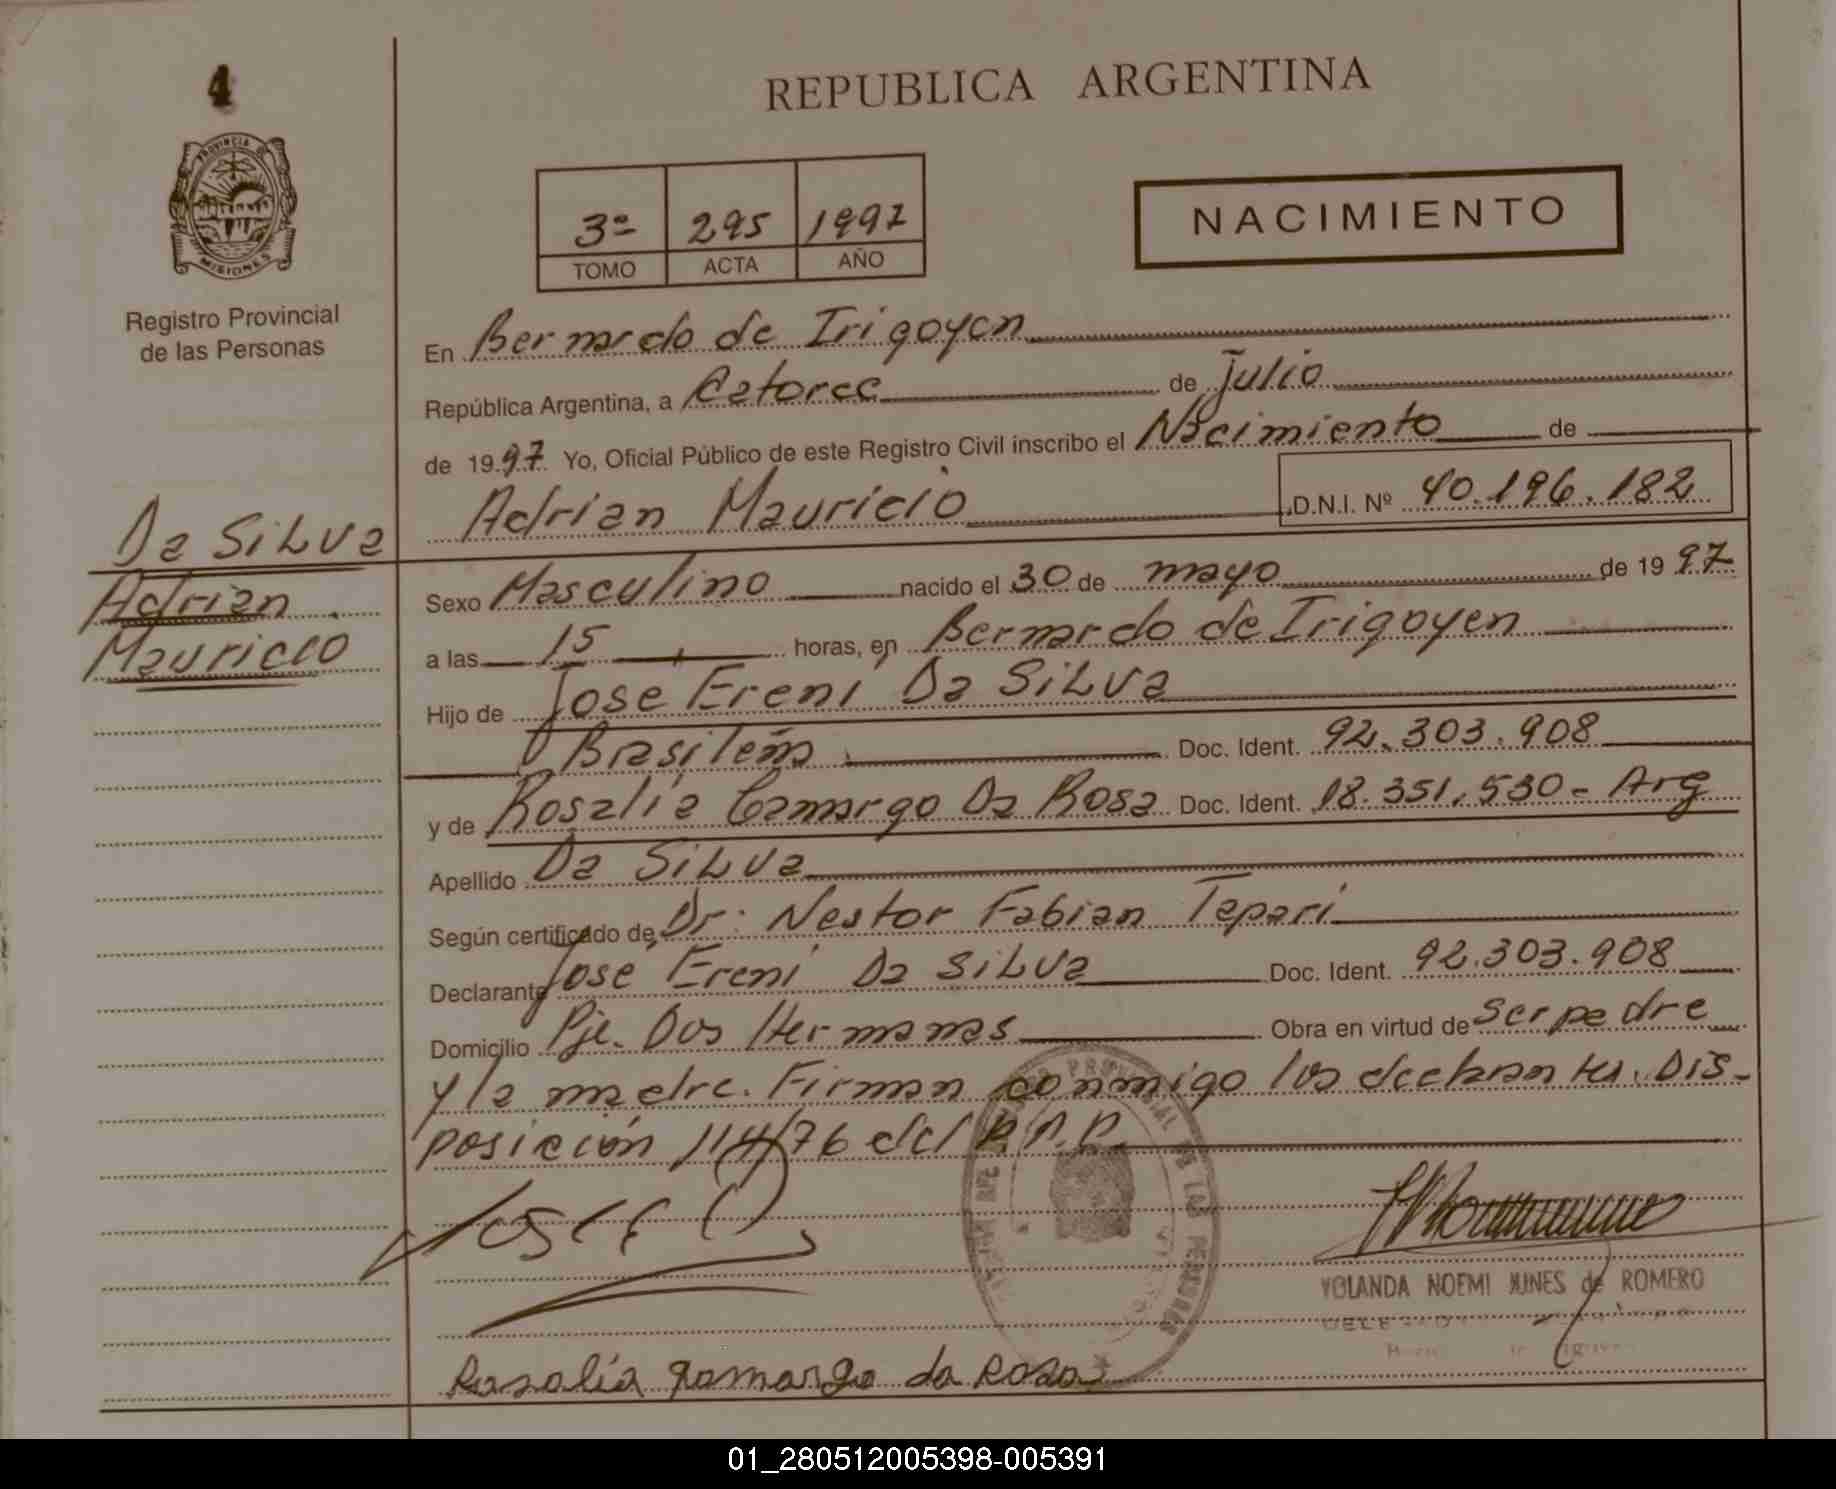 4
REPUBLICA ARGENTINA
PROVINCIA DE
MISIONES
Registro Provincial
de las Personas
3º 295 1997
TOMO ACTA AÑO
NACIMIENTO
En Bernardo de Irigoyen
República Argentina, a Catorce de Julio
de 1997 Yo, Oficial Público de este Registro Civil inscribo el Nacimiento de
Adrian Mauricio D.N.I. Nº 40.196.182
Da SiLva
Adrian
Mauricio
Sexo Masculino nacido el 30 de mayo de 1997
a las 15 horas, en Bernardo de Irigoyen
Hijo de José Ereni Da SiLva
Brasileña Doc. Ident. 92.303.908
y de Rosalia Camargo Da Rosa Doc. Ident. 18.351.530 - Arg
Apellido Da SiLva
Según certificado de Dr: Nestor Fabian Tapari
Declarante José Ereni Da SiLva Doc. Ident. 92.303.908
Domicilio Pje. Dos Hermanas Obra en virtud de ser padre
y la madre. Firman conmigo los declarantes. Dis-
posición 114/76 del R.P.P.
YOLANDA NOEMI NUNES de ROMERO
Rosalia gamargo da Rosa
01_280512005398-005391